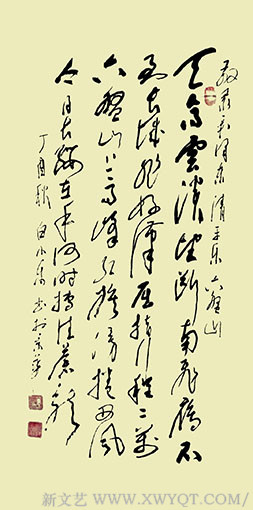 毛泽东清平乐六盘山
天高雲淡望断南飛雁不
到长城非好漢屈指行程二萬
六盤山上高峰红旗漫捲西风
今日长缨在手何时缚住蒼龍
丁酉秋 白小 书於京华
新文艺 WWW.XWYQT.COM/